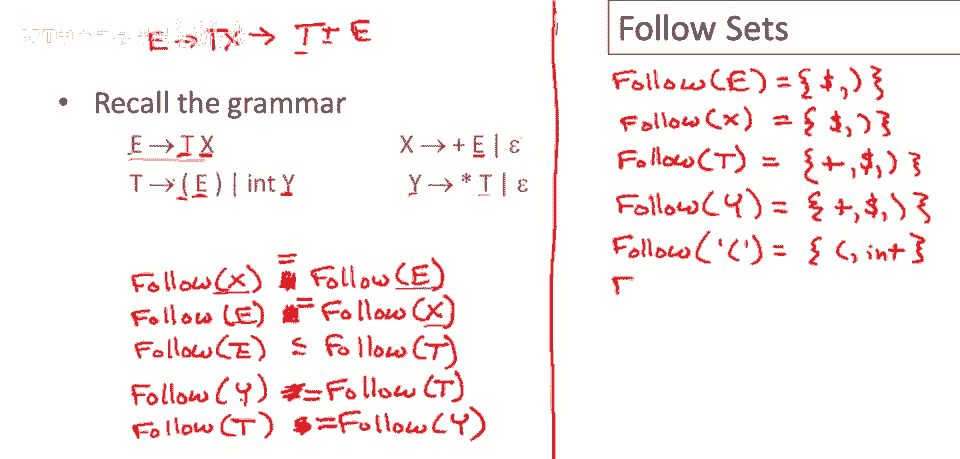 E → TX → T+ E
• Recall the grammar
E → T X    X → + E | ε
T → ( E ) | int Y    Y → * T | ε
Follow(X) = Follow(E)
Follow(E) = Follow(X)
Follow(E) ⊆ Follow(T)
Follow(Y) = Follow(T)
Follow(T) = Follow(Y)
Follow Sets
Follow(E) = { $, ) }
Follow(X) = { $, ) }
Follow(T) = { +, $, ) }
Follow(Y) = { +, $, ) }
Follow('(') = { (, int }